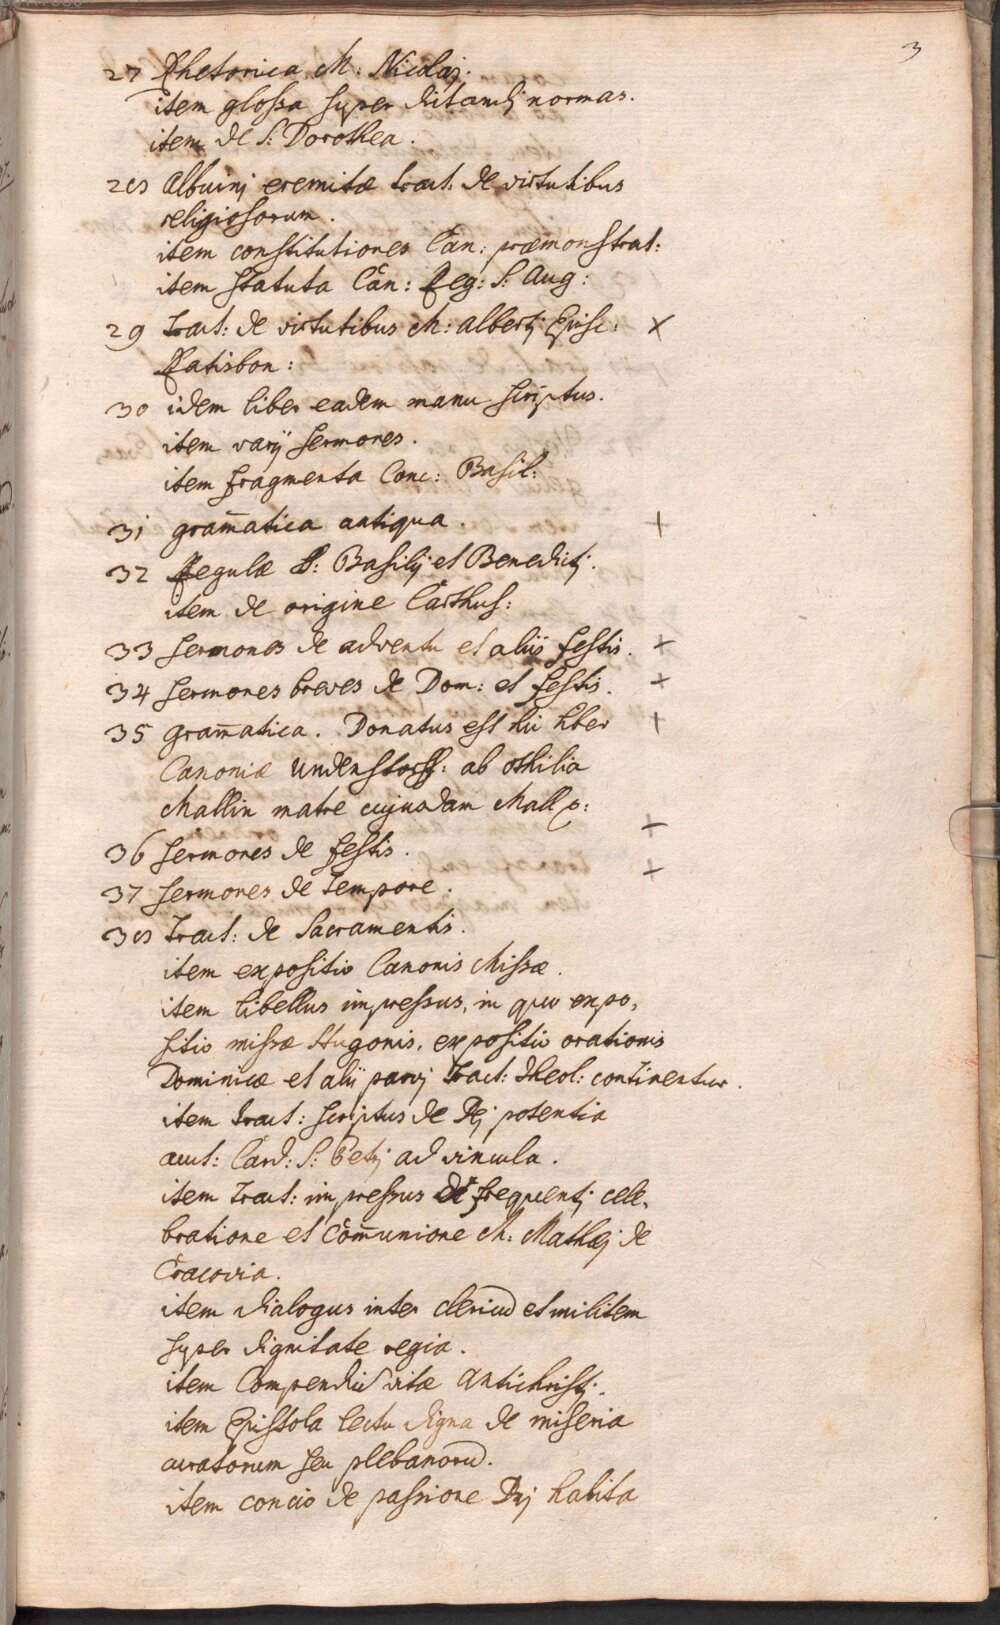 3
27 Rhetorica M: Nicolaj.
item glossa super dictandj normas.
item de S: Dorothea.
28 Albuinj eremitæ tract: de virtutibus
religiosorum.
item constitutiones Can: præmonstrat:
item statuta Can: Reg: S: Aug:
29 tract: de virtutibus M: albertj Episc: x
Ratisbon:
30 idem liber eadem manu scriptus.
item varij sermones.
item fragmenta Conc: Basil:
31 gram̄atica antiqua. +
32 Regulæ S: Basilij et Benedictj.
item de origine Carthus:
33 sermones de adventu et aliis festis. +
34 sermones breves de Dom: et festis. +
35 gram̄atica. Donatus est hic liber |
Canoniæ undenstorff: ab othilia
Mallin matre cujusdam
36 sermones de festis. +
37 sermones de tempore. +
38 tract: de Sacramentis.
item expositio Canonis Missæ.
item libellus impressus, in quo expo,
sitio missæ Hugonis, expositio orationis
Dominicæ et alij parvj tract: theol: continentur.
item tract: scriptus de Dej potentia
auct: Card: S: Petrj ad vincula.
item tract: impressus de frequentj cele,
bratione et Com̄unione M: Mathæj de
Cracovia.
item dialogus inter clericū et militem
super dignitate regia.
item Compendiū vitæ antichristj.
item Epistola lectu digna de miseria
curatorum seu plebanorū.
item concio de passione Dnj habita